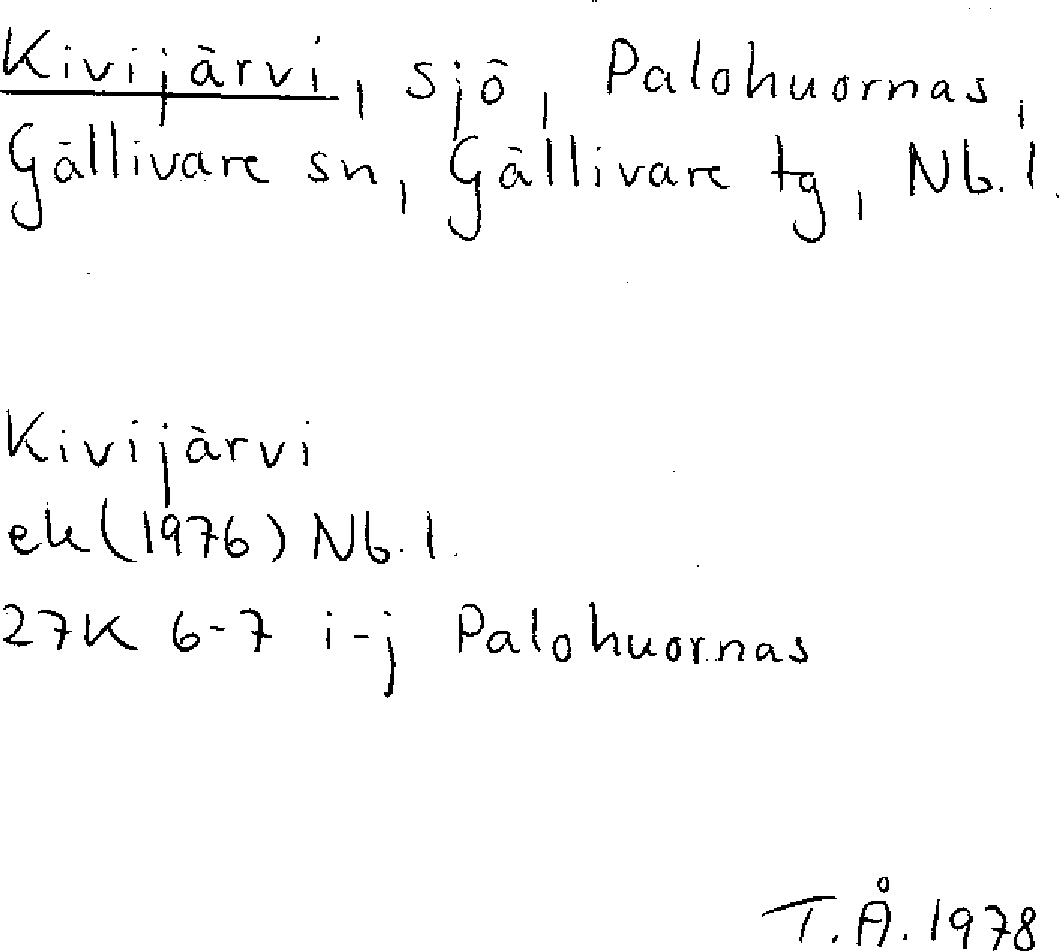 Kivijärvi, sjö, Palohuornas,
Gällivare sn, Gällivare tg, Nb.l.
Kivijärvi
ek (1976) Nb.l.
27K 6-7 i-j Palohuornas
T.Å. 1978